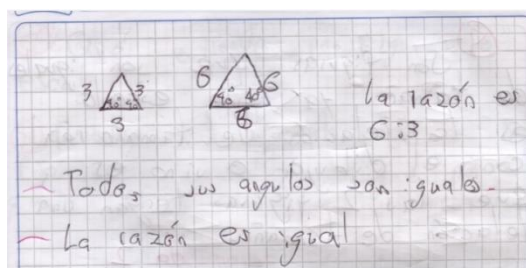 3 3 3
40° 40°
6 6 6
40° 40°
la razón es
6:3
– Todos sus angulos son iguales.
– La razón es igual